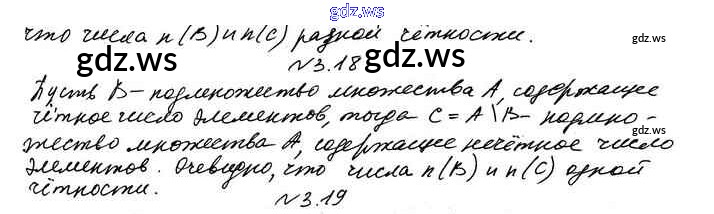 gdz.ws
что числа n(B) и n(C) разной чётности.
gdz.ws
N3.18
gdz.ws
Пусть B - подмножество множества A, содержащее
чётное число элементов, тогда C = A \ B - подмно-
жество множества A, содержащее нечётное число
элементов. Очевидно, что числа n(B) и n(C) одной
чётности.
N3.19
gdz.ws
gdz.ws